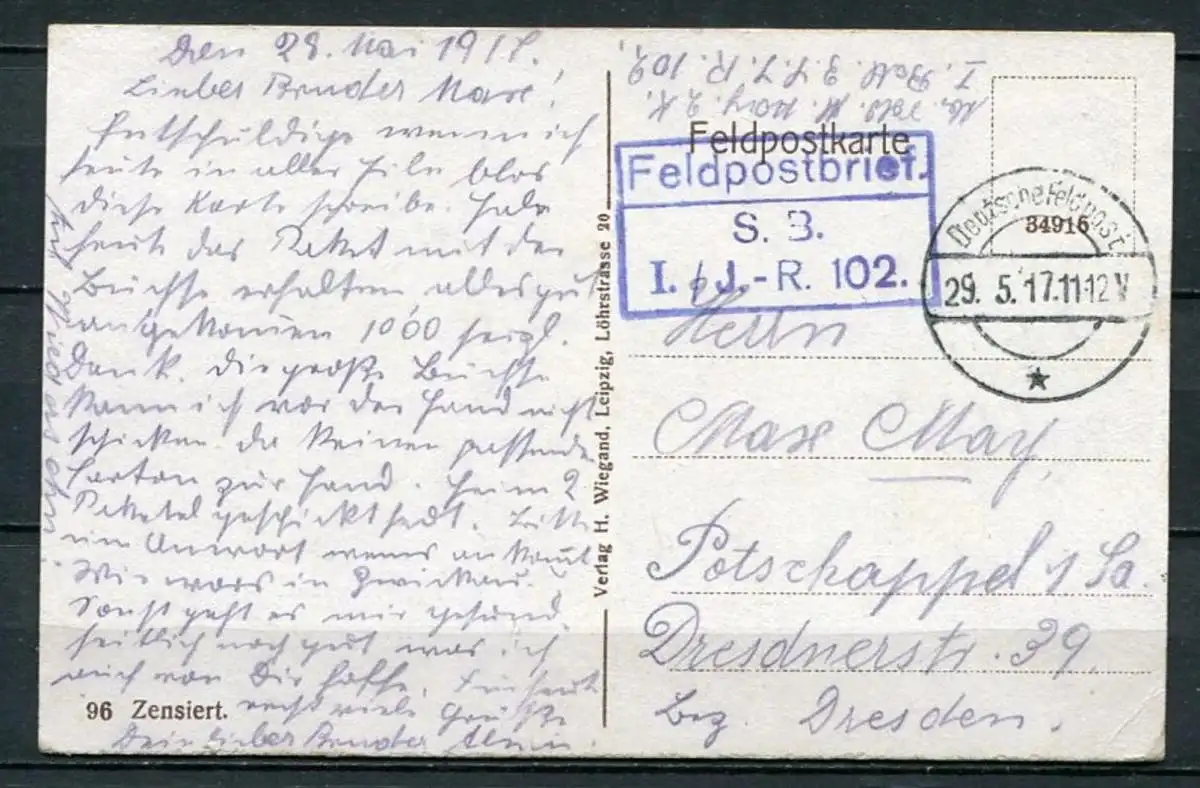 Den 28. Mai 1917.
Lieber Bruder Max!
Entschuldige wenn ich
heute in aller Eile blos
diese Karte schreibe. Habe
heute das Paket mit der
Büchse erhalten alles gut
angekommen 1000 herzl.
Dank. Die große Büchse
kann ich vor der Hand nicht
schicken da keinen passenden
Carton zur Hand.
2
Paketel geschickt hast. Bitte
um Antwort wenns ankommt
Wie wars in Zwickau.
Sonst geht es mir gesund
heitlich noch gut was ich
auch von Dir hoffe. Für heut
recht viele Grüße
Dein lieber Bruder
96 Zensiert.
Verlag H. Wiegand, Leipzig, Löhrstrasse 20
May 2. K.
I. Batl. J. R. 102
Feldpostkarte
Feldpostbrief.
S. B.
I. / J.-R. 102.
Deutsche Feldpost
34916
29. 5. 17. 11-12 V
Herrn
Max May,
Potschappel i/Sa.
Dresdnerstr. 39.
Bez. Dresden.